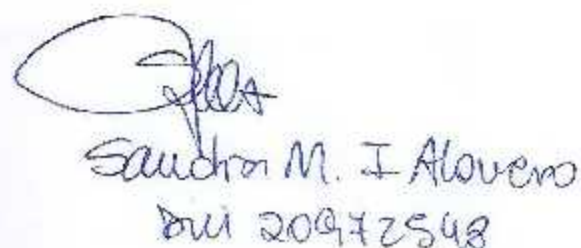 Sandra M. I Alovero
DNI 20972548